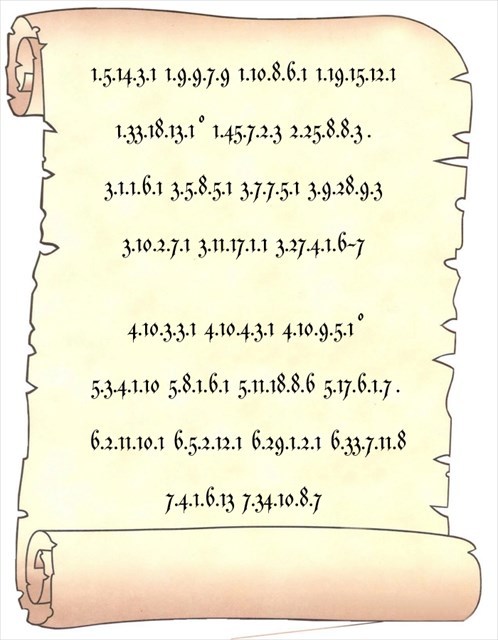 1.5.14.3.1 1.9.9.7.9 1.10.8.6.1 1.19.15.12.1
1.33.18.13.1° 1.45.7.2.3 2.25.8.8.3.
3.1.1.6.1 3.5.8.5.1 3.7.7.5.1 3.9.28.9.3
3.10.2.7.1 3.11.17.1.1 3.27.4.1.6-7
4.10.3.3.1 4.10.4.3.1 4.10.9.5.1°
5.3.4.1.10 5.8.1.6.1 5.11.18.8.6 5.17.6.1.7.
6.2.11.10.1 6.5.2.12.1 6.29.1.2.1 6.33.7.11.8
7.4.1.6.13 7.34.10.8.7